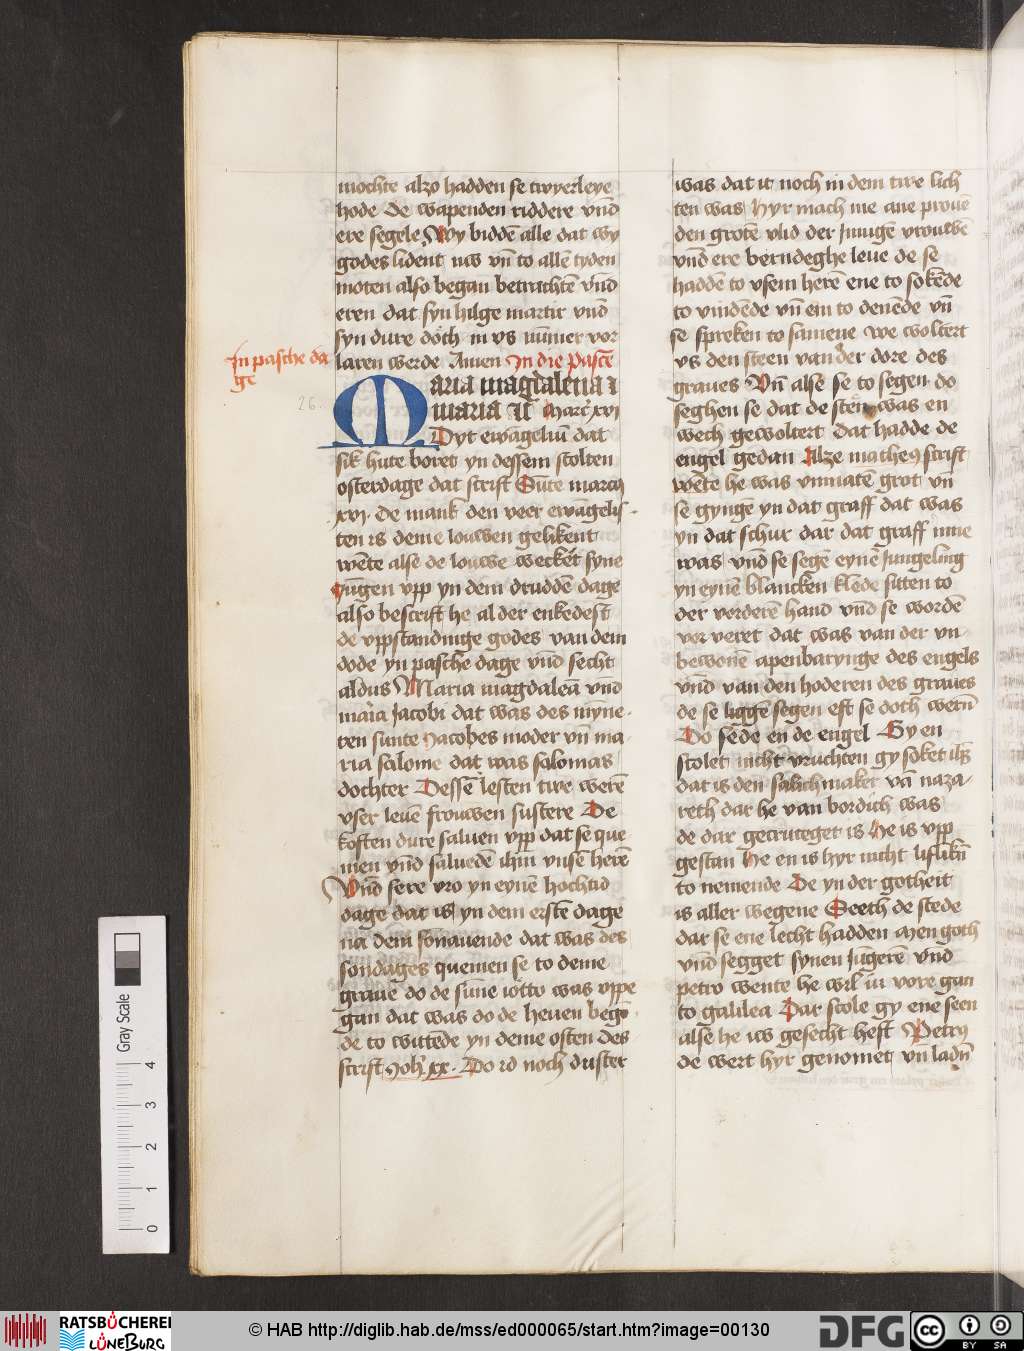 mochte alzo hadden se twyerleye
hode De wapenden riddere vnd
ere segele Wy biddē alle dat wy
godes lident nw vn̄ to allē tyden
moten also began betrachtē vn̄d
eren dat syn hilge martir vnd
syn dure doth in vs nūmer vor
laren werde Amen In die pasce
In pasche da
ge
26.
Maria magdalena ⁊
maria Marc̄ xvi
Dyt ewāgeliū dat
sik hute boret yn dessem stolten
osterdage dat scrift Sūte marcꝰ
xvi. De mank den veer ewāgelis
ten is deme louwen gelikent
wēte alse de louwe wecket syne
Jūgen vpp yn dem drudde dage
also bescrift he al der enkedest
de vppstandinge godes van dem
dode yn pasche dage vn̄d secht
aldus Maria magdaleā vnd
maria Jacobi dat was des myne
ren sunte Jacobes moder vn̄ ma
ria salome dat was salomas
dochter Dessē lesten twe werē
vser leuē frouwen sustere De
koften dure saluen vpp dat se que
men vn̄d salueden ihm vnsē herē
Vn̄d sere vro yn eynē hochtid
dage dat is yn dem erstē dage
na dem sonauende dat was des
sondages quemen se to deme
graue do de sūne iotto was vppe
gan dat was do de heuen begō
de to wittēde yn deme osten des
scrift Joh̄ xx. Do id noch duster
was dat it noch in dem twe lich
ten was Hyr mach me ane prouē
den grotē vlid der Jungē vrouwē
vnd ere berndeghe leue de se
haddē to vsem herē ene to sokēde
to vindēde vn̄ em to denēde vn̄
se spreken to samene we woltert
vs den steen van der dore des
graues Vn̄ alse se to segen do
seghen se dat de sten was en
wech gewoltert dat hadde de
engel gedan Alze matheꝰ scrift
wēte he was vnmatē grot vn̄
se gynge yn dat graff dat was
yn dat schur dar dat graff inne
was vnd se segē eynē Jungeling
yn eynē blancken klēde sitten to
der vorderē hand vnd se wordē
vor veret dat was van der vn
bewonē apenbarynge des engels
vnd van den hoderen des graues
de se liggē segen eft se doth wern̄
Do sede en de engel Gy en
scolet nicht vruchten gy soket ihm
dat is den salichmaker vā naza
reth dar he van bordich was
de dar gecruceget is He is vpp
gestan He en is hyr nicht liflikn̄
to nemende De yn der gotheit
is aller wegene Seeth de stede
dar se ene lecht hadden Men goth
vnd segget synen Jūgerē vnd
petro wente he wil iu vore gan
to galilea Dar scole gy ene seen
alse he iw gesecht heft Petrꝰ
de wert hyr genomet vn ladn̄
Gray Scale
4
3
2
1
0
RATSBÜCHEREI
LÜNEBURG
© HAB http://diglib.hab.de/mss/ed000065/start.htm?image=00130
DFG
cc
BY SA